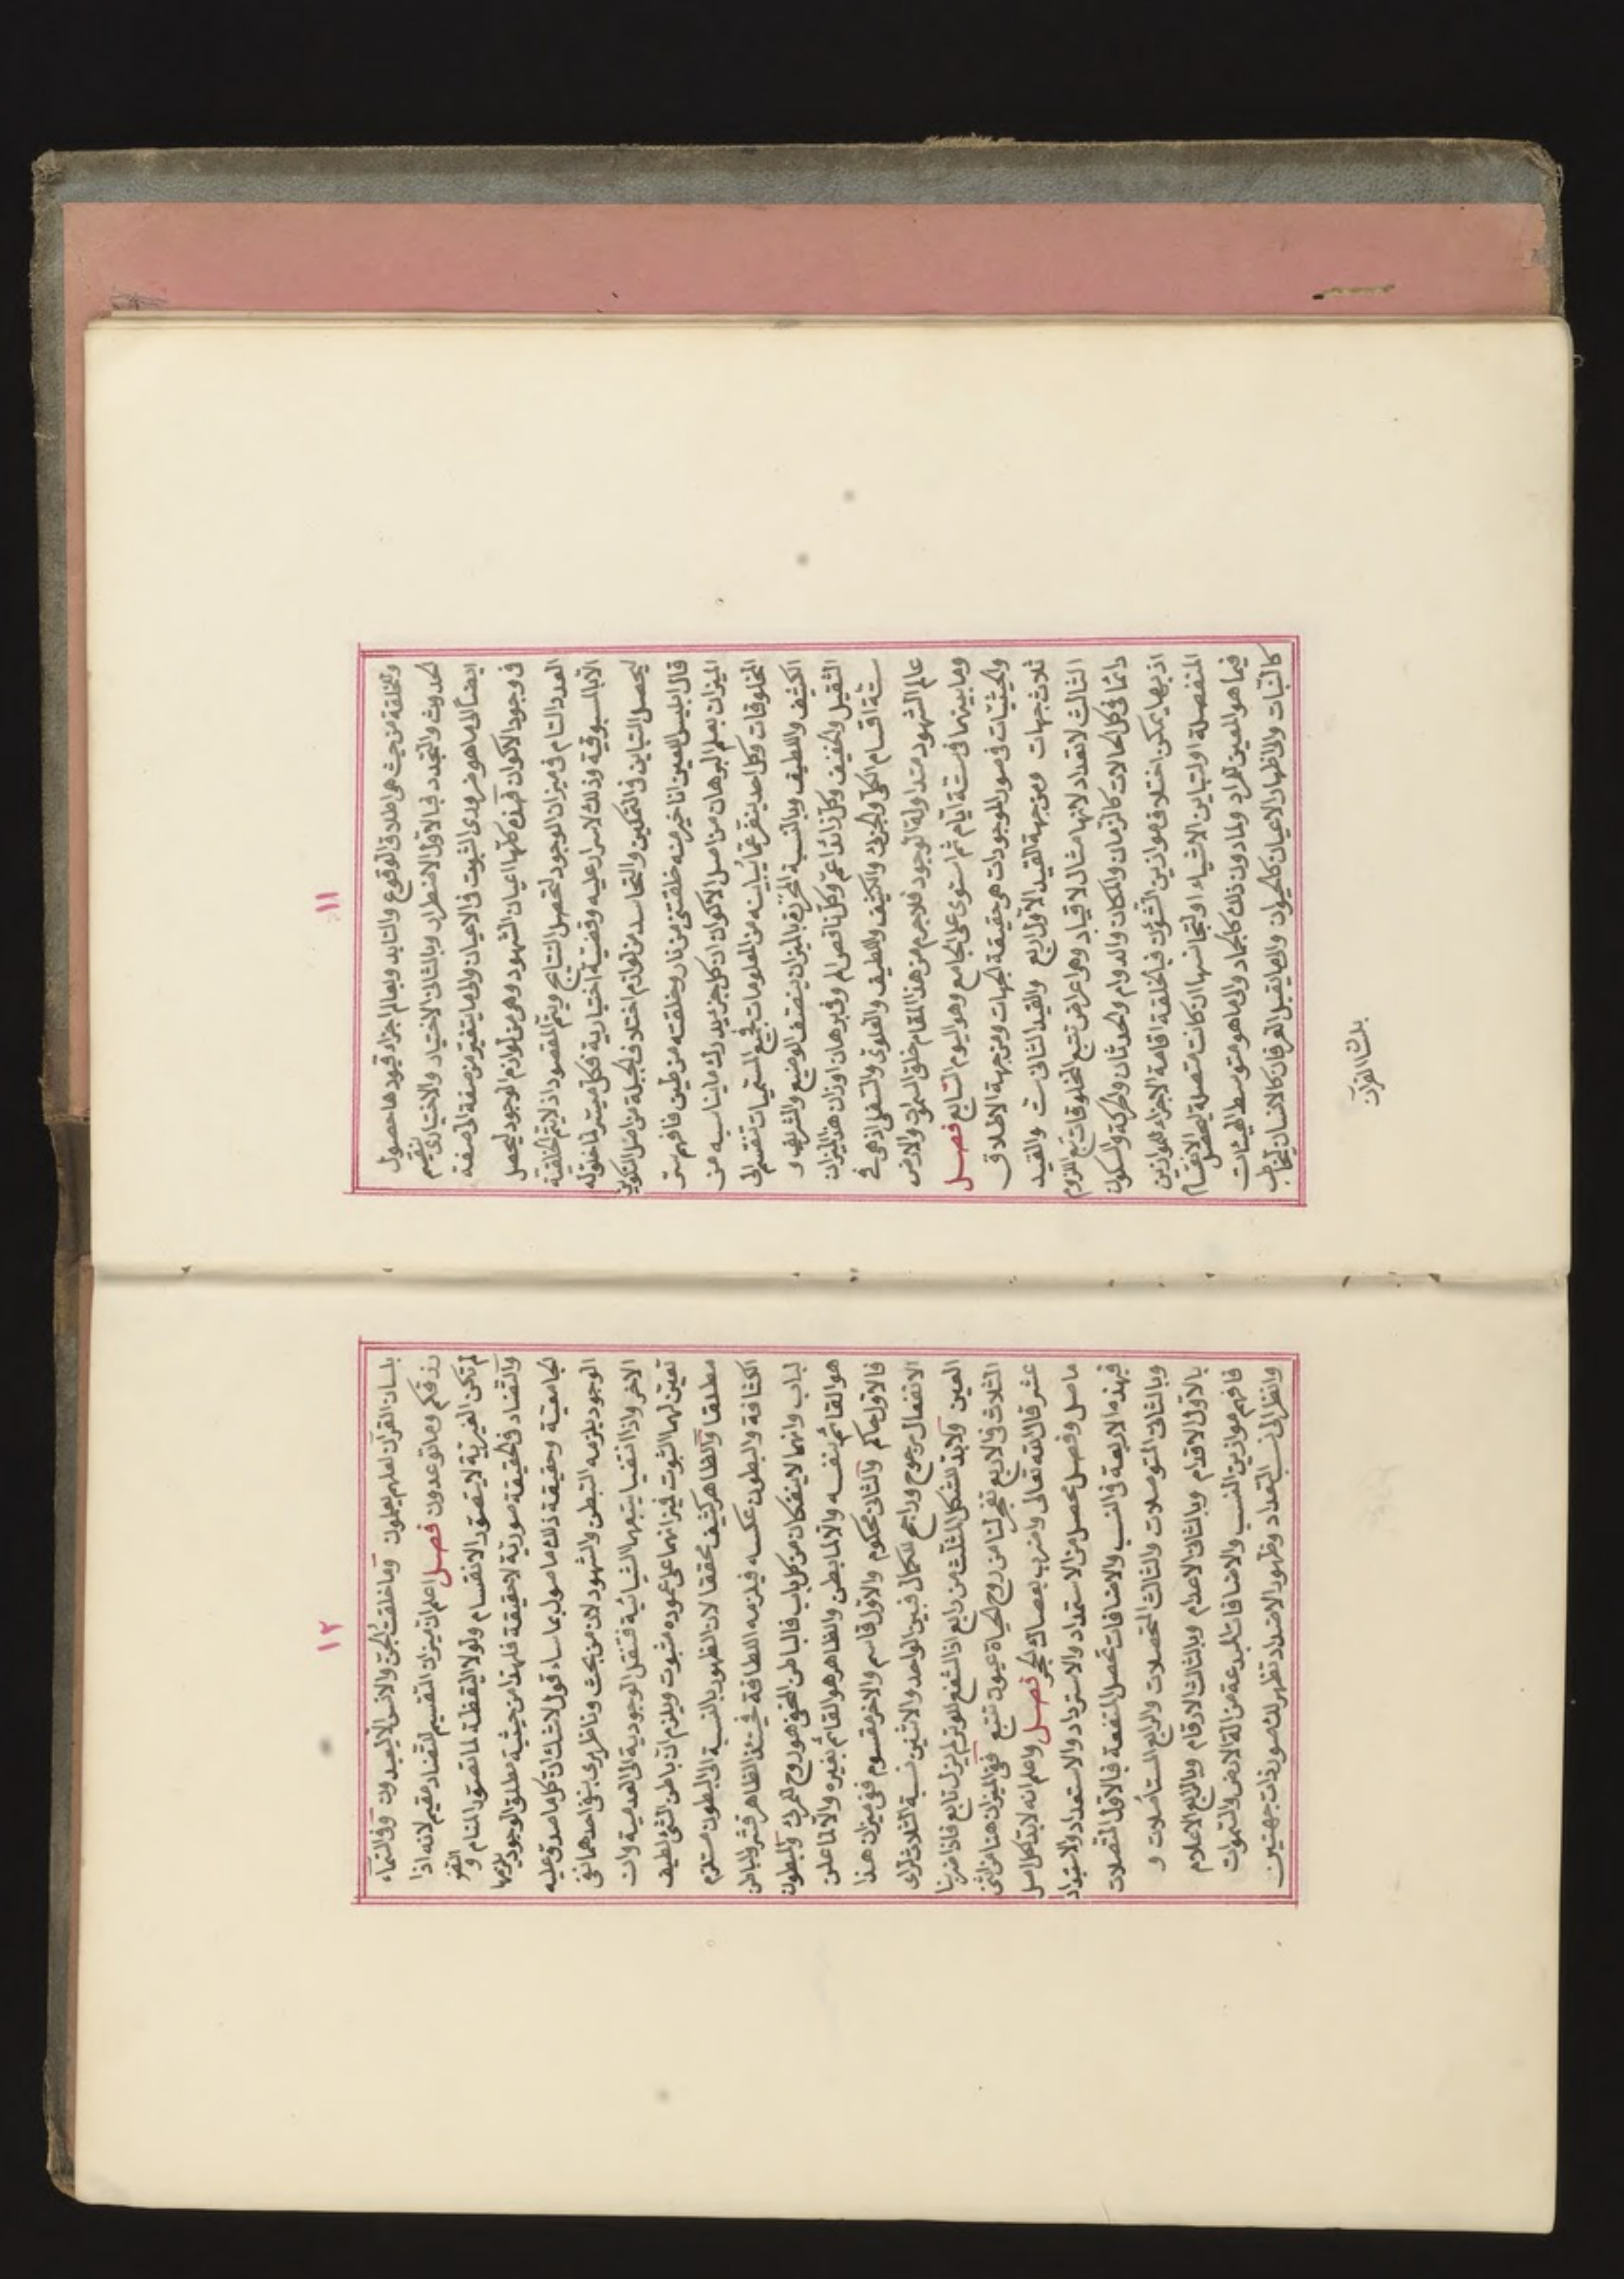 ١١
وللخلقة من حيث هي اطلاق الوقوع والتابد وبعالم اجزاء قيودها حصول
الحدوث والتجدد فبالاول الاضطرار وبالثاني الاختيار والاختياري ينقسم
ايضا الى ما هو ضروري الثبوت في الاعيان والى ما يتغير من صفة الى صفة
في وجود الاكوان فهذه كلها اعيان الشهود وهي من لوازم الوجود ليحصل
العدد التام في ميزان الوجود لتحصل النتايج ويتم المقصود اذ لا يتم الخلقية
الا بالمسبوقية وذلك لاسرار عليه وقضية اختيارية فكل ميسر لما خلق له
ليحصل التباين في التمكين والتحاسد من لوازم اختلاف الجبلة من اصل التكوين
قال ابليس اللعين انا خير منه خلقتني من نار وخلقته من طين فافهم سر
الميزان بعلم البرهان من اصل الاكوان ان كل جزء يدرك ما يناسبه من
المخلوقات وكل احد ينفر عما يباينه من المعلومات فجميع المسميات تنقسم الى
الكثيف واللطيف وبالنسبة المحررة بالميزان ينصف الوضيع والشريف و
الثقيل والخفيف وكل زائد اعم وكل ناقص الم وفي برهان اوزان هذا الميزان
ستة اقسام الكلي والجزئي والكثيف واللطيف والعلوي والسفلي اذ هي في
عالم الشهود متداولة الوجود فلا جرم من هذا المقام خلق السموات والارض
وما بينهما في ستة ايام ثم استوى على الجامع وهو اليوم السابع فصل
والحيثيات في صور الموجودات هي حقيقة الجهات ومن جهة الاطلاق
ثلاث جهات ومن جهة القيد الاول اربع والقيد الثاني ست والقيد
الثالث لا تعداد لانها مثال لا قياد وهو اعراض تتبع المخلوقات مع اللزوم
دائما في كل الحالات كالزمان والمكان والدوام والحدثان والحركة والسكون
اذ بها يمكن اختلاف موازين الشؤن فبالخلقة اقامة الاجزاء للموازين
المنفصلة او لتباين الاشياء او لتجانسها ان كانت متصلة ليحصل الانقسام
فيما هو المعين المراد ولما دون ذلك كالجماد والى ما هو متوسط الهيئات
كالنبات والى اظهار الاعيان كالحيوان والى ما يقبل العرفان كالانسان المخاطب
بلسان القرآن
١٢
بلسان القرآن لعلهم يعلمون وما خلقت الجن والانس الا ليعبدون وفي السماء
رزقكم وما توعدون فصل اعلم ان ميزان التقسيم للتضاد مقيم لانه اذا
لم تكن الغيرية لا يتصور الانقسام ولولا اليقظة لما تصور المنام و
والتضاد في الحقيقة صورية لا حقيقة فلهذا من حيثية مطلق الوجود
بجامعية وحقيقة ذلك ما صول بما ساء قول لا شك ان كل ما صدق عليه
الوجود يلزمه التبطن والشهود لان من بحث وناظر يرى بنفي احدهما نفي
الاخر واذا انتفيا يتبعهما الشيائية فتنقل الوجودية الى العدمية وان
تعين لهما الثبوت فميزانهما على عموده مثبوت ويلزم ان باطن الشئ لطيف
مطلقا والظاهر كثيف محققا لان الظهور بالنسبة الى البطون مستلزم
الكثافة والبطون عكسه فيلزمه اللطافة فحينئذ الظاهر قشر والباطن
لباب وانهما لا ينفكان من كل باب فالباطن الخفي هو روح المحرك والبطون
هو القائم بنفسه والا لما بطن والظاهر هو القائم بغيره والا لما علن
فالاول حاكم والثاني محكوم والاول قاسم والاخر مقسوم ففي ميزان هذا
الانفعال مرجوح وراجح للكمال فبين الواحد والاثنين نسبة الثلاث لرائ
العين ولابد للشكل المثلث من رابع اذ الشفع للوتر لم يزل تابع فاذا ضربنا
الثلاث في الاربع تفجر لنا من روح الحياة عيون تنبع ففي الميزان هنا من اثني
عشر قال الله تعالى واضرب بعصاك الحجر فصل واعلم انه لابد لكل اصل
ما صل وفصل يحصل من الاستمداد والاسترداد والاستعداد والاستبداد
فهذه الاربعة في النسب والاضافات تحصل المنفعة فبالاول المتصلات
وبالثاني المتوصلات والثالث المتحصلات والرابع المستاصلات و
بالاول الاقدام وبالثاني الاعدام وبالثالث الارقام وبالرابع الاعلام
فافهم موازين النسب والاضافات المبدعة من آلة الارض والسموات
وانظر الى نسب التعداد وظهور الاضداد تظهر لك صور ذات جهتين